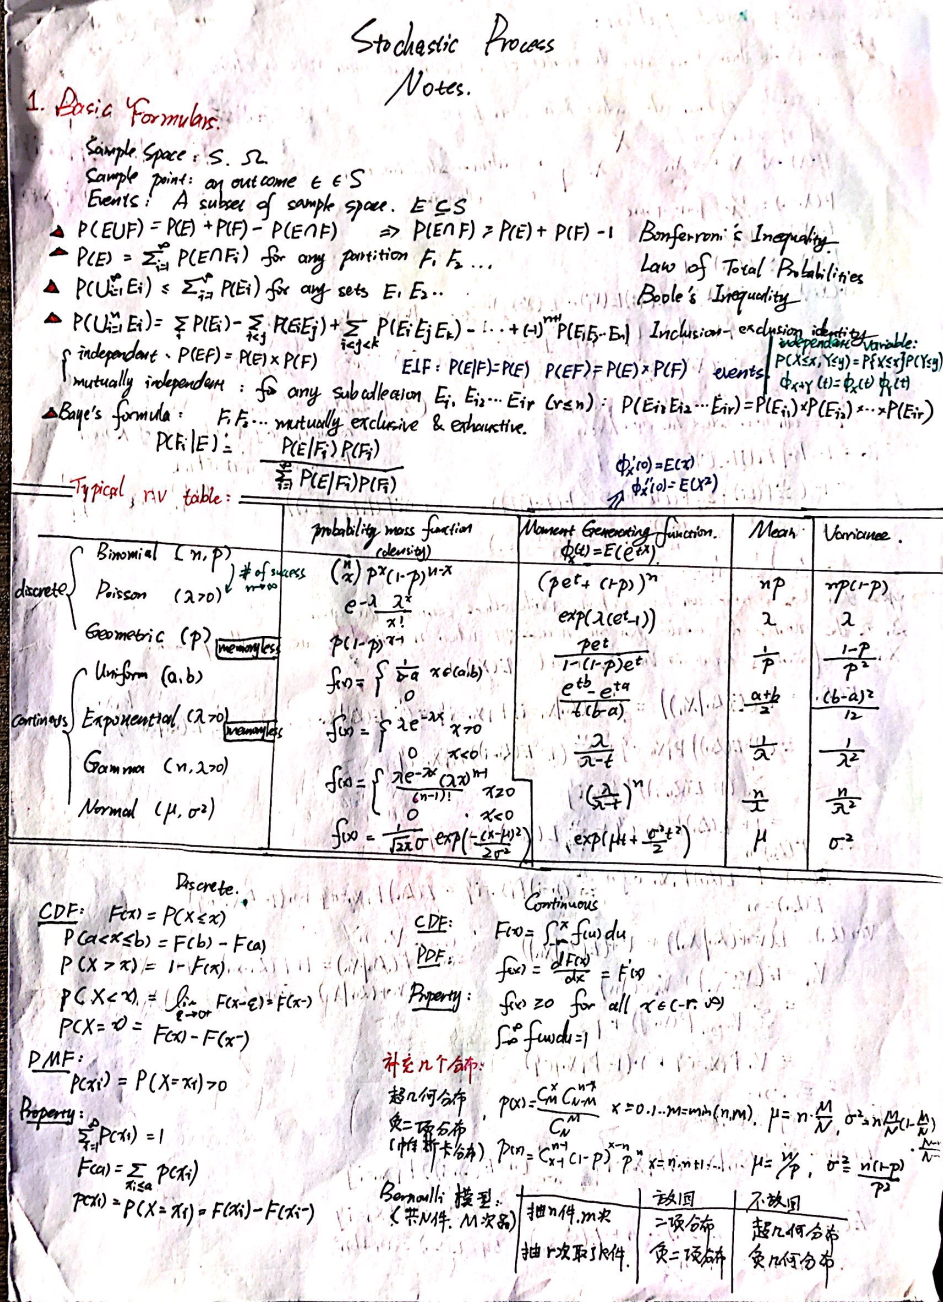 Stochastic Process
Notes.
1. Basic Formulars.
Sample Space: S. Ω
Sample point: an outcome ∈ ∈ S
Events: A subset of sample space. E ⊆ S
▲ P(E∪F) = P(E) + P(F) - P(E∩F) ⇒ P(E∩F) ≥ P(E) + P(F) - 1 Bonferroni's Inequality
▲ P(E) = Σ_{i=1}^∞ P(E∩Fi) for any partition F1 F2 ... Law of Total Probabilities
▲ P(∪_{i=1}^∞ Ei) ≤ Σ_{i=1}^∞ P(Ei) for any sets E1 E2... Boole's Inequality
▲ P(∪_{i=1}^n Ei) = Σ_i P(Ei) - Σ_{i<j} P(EiEj) + Σ_{i<j<k} P(Ei Ej Ek) - ... + (-1)^{n+1} P(E1E2...En) Inclusion-exclusion identity
independent: P(EF) = P(E) × P(F) E⊥F: P(E|F)=P(E) P(EF)=P(E)×P(F) events
independent variable:
P(X≤x, Y≤y)=P{X≤x}P(Y≤y)
ϕ_{X+Y}(t)=ϕ_X(t) ϕ_Y(t)
mutually independent: for any subcollection Ei1 Ei2...Eir (r≤n): P(Ei1 Ei2...Eir)=P(Ei1)×P(Ei2)×...×P(Eir)
▲ Baye's formula: F1 F2... mutually exclusive & exhaustive.
P(Fi|E) = P(E|Fi) P(Fi) / Σ_{i=1}^∞ P(E|Fi)P(Fi)
ϕ'_x(0)=E(x)
ϕ''_x(0)=E(X²)
Typical rv table:
probability mass function (density) Moment Generating function. ϕ_x(t)=E(e^{tx}) Mean Variance.
discrete
Binomial (n, p) (n x) p^x (1-p)^{n-x} (pe^t + (1-p))^n np np(1-p)
# of success n→∞
Poisson (λ>0) e^{-λ} λ^x / x! exp(λ(e^t-1)) λ λ
Geometric (p) memoryless p(1-p)^{x-1} pe^t / 1-(1-p)e^t 1/p 1-p / p²
continous
Uniform (a,b) f(x) = { 1/b-a x∈(a,b) 0 e^{tb}-e^{ta} / t(b-a) a+b / 2 (b-a)² / 12
Exponential (λ>0) memoryless f(x) = { λe^{-λx} x>0 0 x<0 λ / λ-t 1/λ 1/λ²
Gamma (n, λ>0) f(x) = { λe^{-λx}(λx)^{n-1} / (n-1)! x≥0 0 x<0 (λ / λ-t)^n n/λ n/λ²
Normal (μ, σ²) f(x) = 1/√2π σ exp(-(x-μ)² / 2σ²) exp(μt + σ²t²/2) μ σ²
Discrete.
CDF: F(x) = P(X≤x)
P(a<x≤b) = F(b) - F(a)
P(X>x) = 1-F(x)
P(X<x) = lim_{ε→0+} F(x-ε)=F(x-)
P(X=x) = F(x) - F(x-)
PMF:
P(xi) = P(X=xi)>0
Property:
Σ_{i=1}^∞ P(xi) = 1
F(a) = Σ_{xi≤a} P(xi)
P(xi) = P(X=xi) = F(xi) - F(xi-)
Continuous
CDF: F(x) = ∫_{-∞}^x f(u) du
PDF: f(x) = dF(x)/dx = F'(x)
Property: f(x) ≥0 for all x∈(-∞, ∞)
∫_{-∞}^∞ f(u)du=1
补充几个分布:
超几何分布 P(x)= C_M^x C_{N-M}^{n-x} / C_N^M x=0.1...m=min(n,M). μ= n·M/N, σ²=n M/N (1-M/N) · N-n/N-1
负二项分布
(帕斯卡分布) P(n)= C_{x-1}^{n-1} (1-p)^{x-n} p^n, x=n.n+1... μ= n/p, σ²= n(1-p)/p²
Bernoulli 模型: 放回 不放回
(共N件. M次品) 抽n件.m次 二项分布 超几何分布
抽r次取k件. 负二项分布 负几何分布